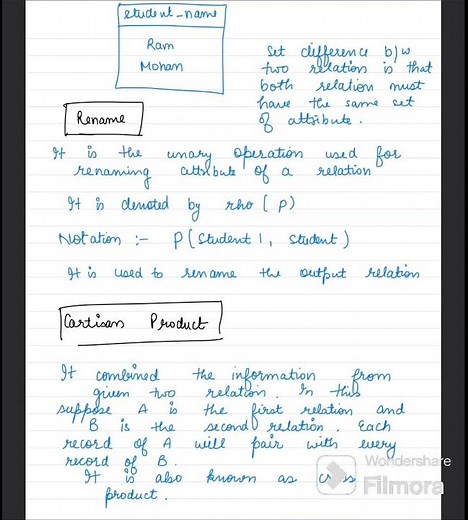 student_name
Ram
Mohan
Set difference b/w
two relation is that
both relation must
have the same set
of attribute.
Rename
It is the unary operation used for
renaming attribute of a relation
It is denoted by rho (ρ)
Notation :- ρ(Student 1, student)
It is used to rename the output relation
Cartisan Product
It combined the information from
given two relation. In this
suppose A is the first relation and
B is the second relation. Each
record of A will pair with every
record of B.
It is also known as cross
product.
Wondershare
Filmora